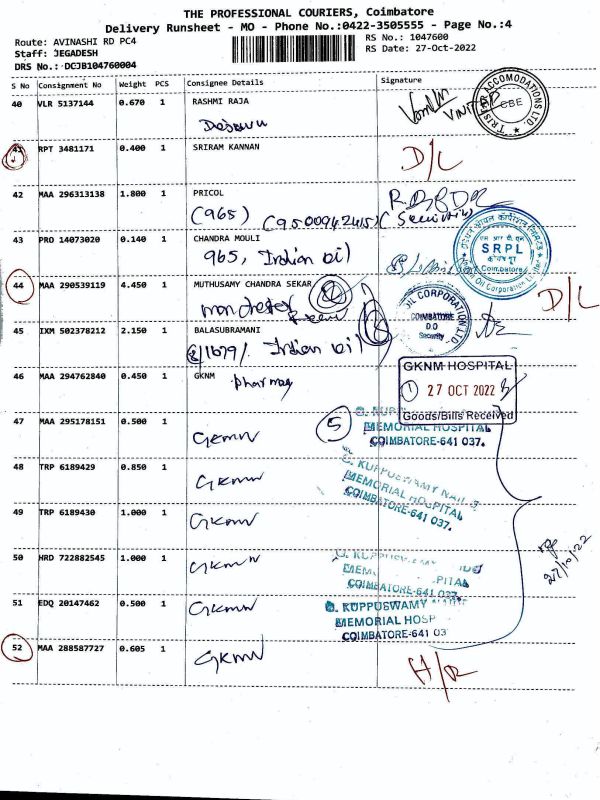 THE PROFESSIONAL COURIERS, Coimbatore
Delivery Runsheet - MO - Phone No.:0422-3505555 - Page No.:4
Route: AVINASHI RD PC4
RS No.: 1047600
Staff: JEGADESH
RS Date: 27-Oct-2022
DRS No.: DCJB104760004
S No Consignment No Weight PCS Consignee Details Signature
40 VLR 5137144 0.670 1 RASHMI RAJA
TRISTAR ACCOMODATIONS LTD
CBE
41 RPT 3481171 0.400 1 SRIRAM KANNAN
D/L
42 MAA 296313138 1.800 1 PRICOL
(965) (9500942415)
43 PRO 14073020 0.140 1 CHANDRA MOULI
965, Indian oil
SRPL
Coimbatore
Indian Oil Corporation Limited
44 MAA 290539119 4.450 1 MUTHUSAMY CHANDRA SEKAR
manchester
D/L
OIL CORPORATION LTD
COIMBATORE
D.O
Security
45 IXM 502378212 2.150 1 BALASUBRAMANI
1679/ Indian oil
46 MAA 294762840 0.450 1 GKNM
pharmacy
GKNM HOSPITAL
27 OCT 2022
Goods/Bills Received
47 MAA 295178151 0.500 1
GKMN
5
MEMORIAL HOSPITAL
COIMBATORE-641 037.
48 TRP 6189429 0.850 1
GKMN
G. KUPPUSWAMY NAIDU
MEMORIAL HOSPITAL
COIMBATORE-641 037.
49 TRP 6189430 1.000 1
GKMN
50 HRD 722882545 1.000 1
GKMN
COIMBATORE-641 037
27/10/22
51 EDQ 20147462 0.500 1
GKMN
G. KUPPUSWAMY
MEMORIAL HOSP
COIMBATORE-641 03
52 MAA 288587727 0.605 1
GKMN
H/R